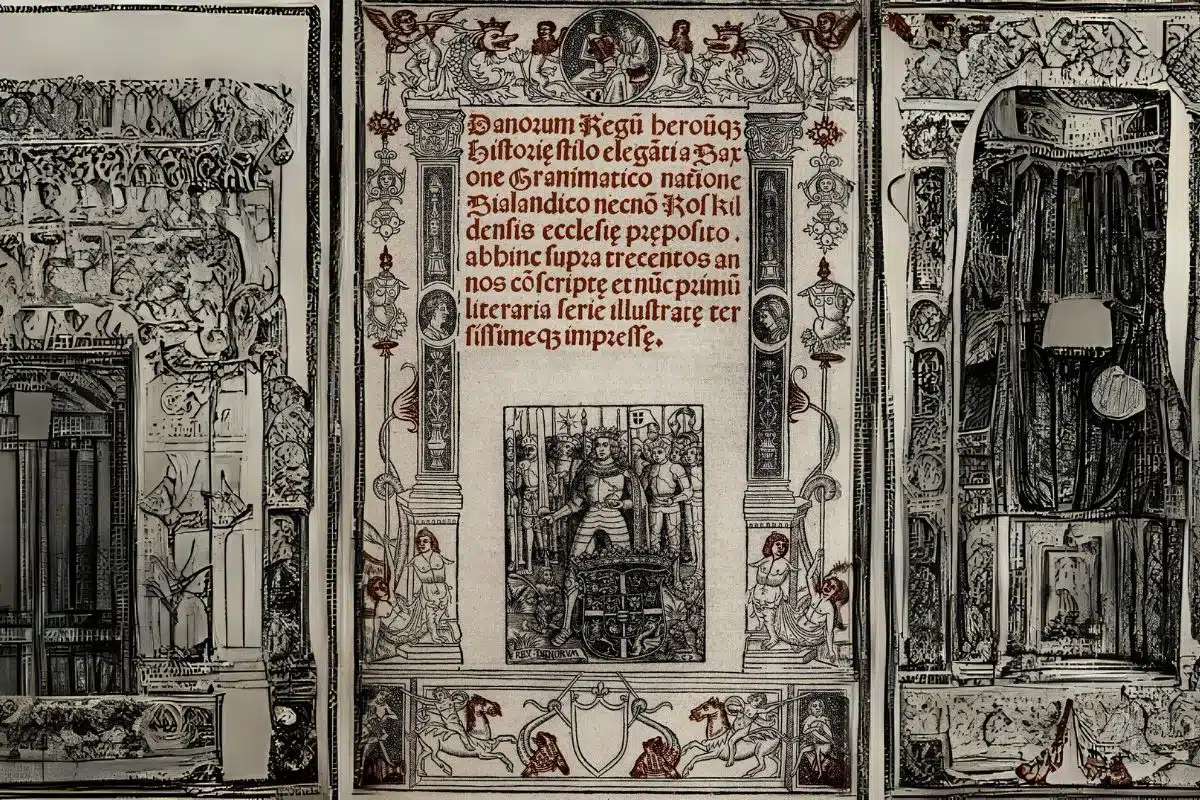 Danorum Regū heroūqꝫ
Historię stilo elegāti a Sax
one Grammatico natiōne
Sialandico necnō Roskil
densis ecclesię pręposito.
abhinc supra trecentos an
nos cōscriptę et nūc primū
literaria serie illustratę ter
sissimeqꝫ impressę.
REX·DANORVM